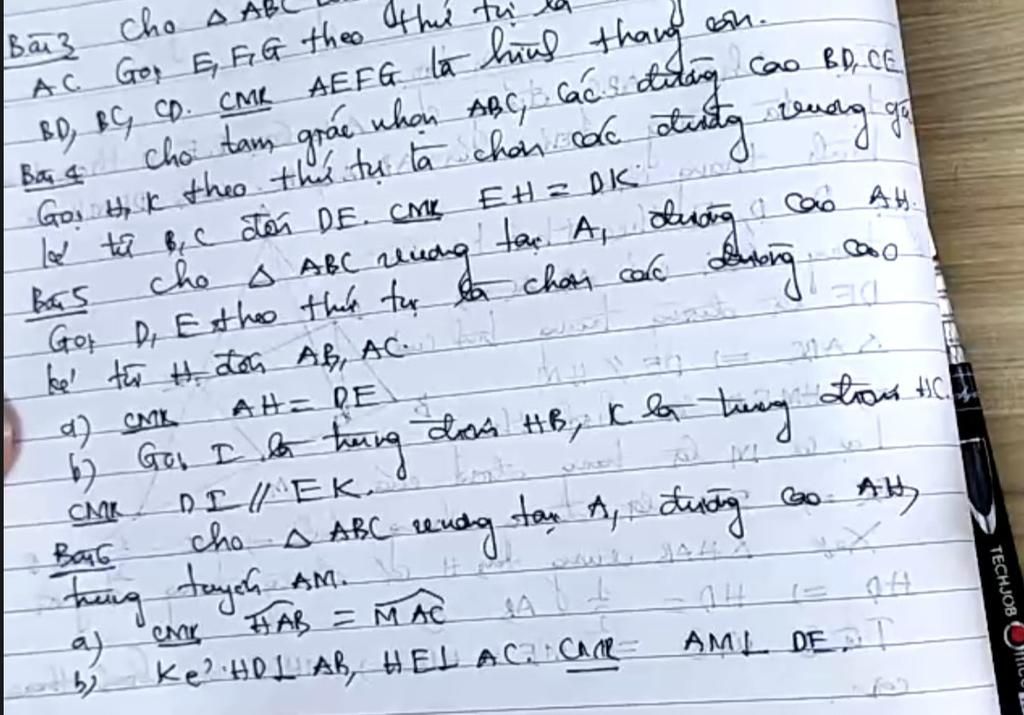 Bài 3 Cho △ ABC
AC. Gọi E, F, G theo thứ tự là
BD, BC, CD. CMR AEFG là hình thang cân.
Bài 4 cho tam giác nhọn ABC, các đường cao BD, CE
Gọi H, K theo thứ tự là chân các đường vuông gó
kẻ từ B, C đến DE. CMR EH = DK
Bài 5 cho △ ABC vuông tại A, đường cao AH.
Gọi D, E theo thứ tự là chân các đường cao
kẻ từ H đến AB, AC.
a) CMR AH = DE
b) Gọi I là trung điểm HB, K là trung điểm HC.
CMR DI // EK.
Bài 6 cho △ ABC vuông tại A, đường cao AH,
trung tuyến AM.
a) CMR HAB = MAC
b) Kẻ HD⊥ AB, HE⊥ AC. CMR AM⊥ DE.
TECHJOB